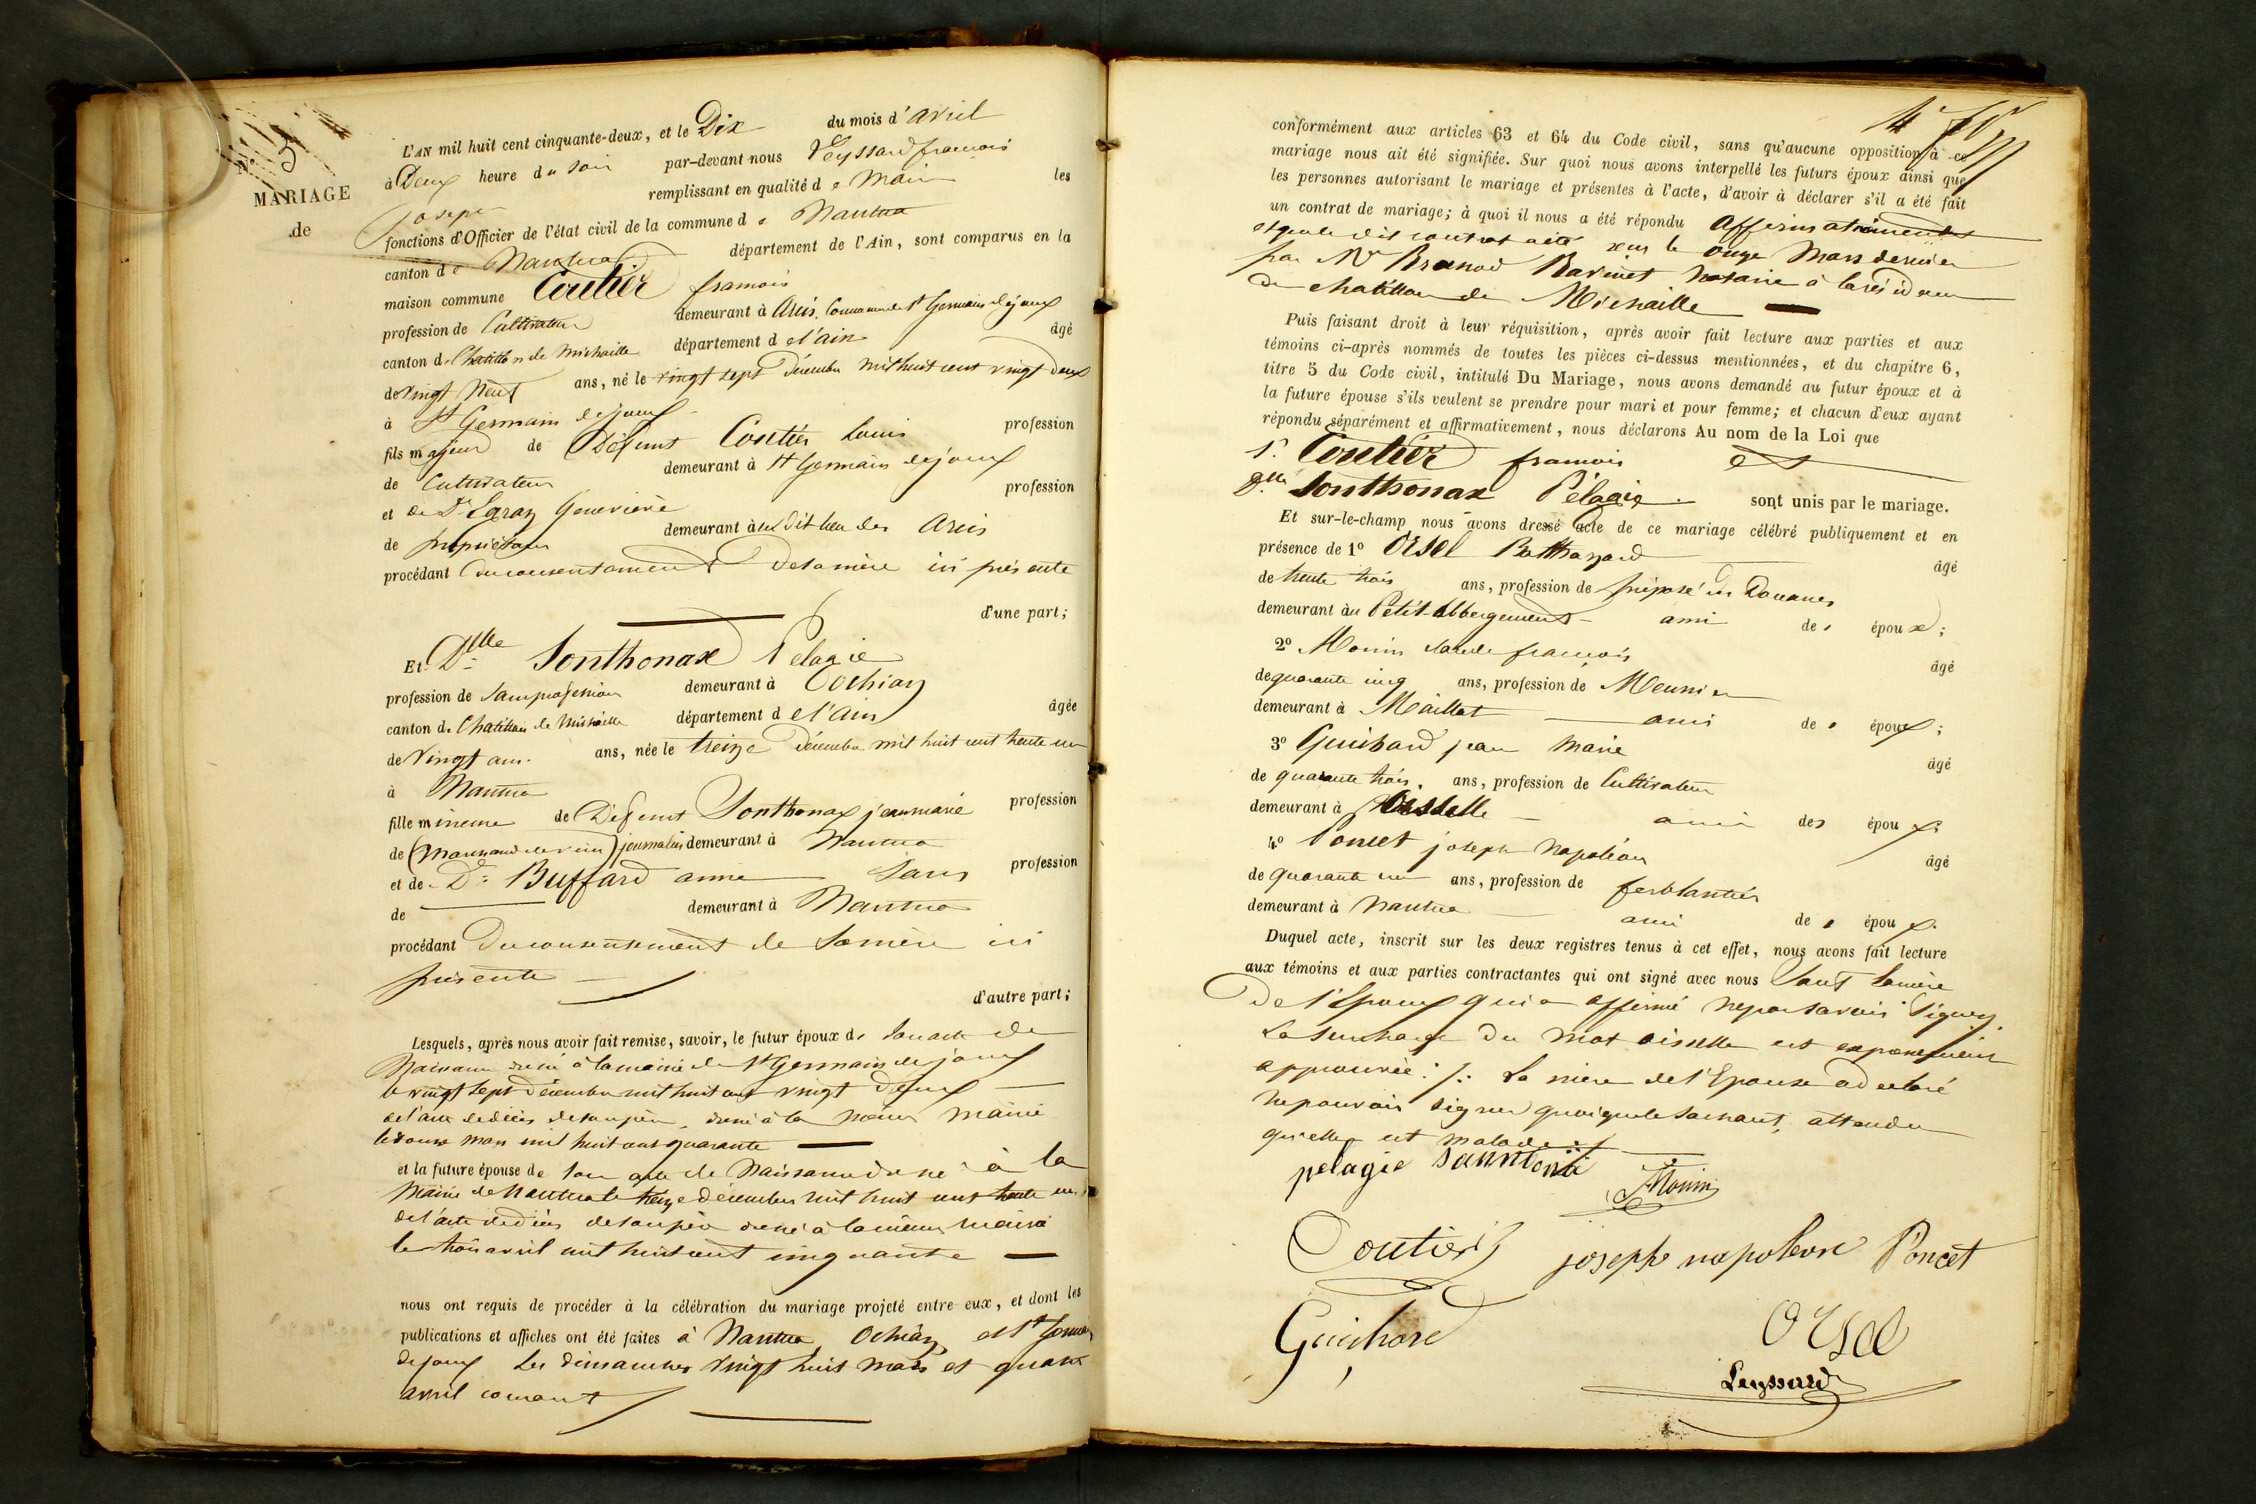 N° 5
MARIAGE
de
L'AN mil huit cent cinquante-deux, et le Dix du mois d'avril
à Deux heure du soir par-devant nous Leyssard françois
joseph remplissant en qualité de Maire les
fonctions d'Officier de l'état civil de la commune de Nantua
canton de Nantua département de l'Ain, sont comparus en la
maison commune Coutier françois
profession de Cultivateur demeurant à Commune de St Germain dejoux
canton de Chatillon de Michaille département de l'ain âgé
de vingt Neuf ans, né le vingt sept Décembre mil huit cent vingt deux
à St Germain dejoux
fils majeur de Défunt Coutier Louis profession
de Cultivateur demeurant à St Germain dejoux
et de De Geneviève profession
de propriétaire demeurant à
procédant du consentement de sa mère ici présente
d'une part;
Et Dlle Sonthonax Pelagie
profession de sans profession demeurant à Ochiaz
canton de Chatillon de Michaille département de l'ain âgée
de Vingt ans. ans, née le treize Décembre mil huit cent trente un
à Nantua
fille mineure de Défunt Sonthonax jean marie profession
de (Marchand de vin) journalier demeurant à Nantua
et de De Buffard anne Sans profession
de demeurant à Nantua
procédant Du consentement de sa mère ici
présente
d'autre part;
Lesquels, après nous avoir fait remise, savoir, le futur époux de son acte de
Naissance dressé à la mairie de St Germain de joux
le vingt sept décembre mil huit cent vingt deux
de l'acte de décès de son père, dressé à la même mairie
le mars mil huit cent quarante
et la future épouse de son acte de Naissance dressé à la
Mairie de Nantua le treize décembre mil huit cent trente un,
de l'acte de décès de son père dressé à la même mairie
le trois avril mil huit cent cinquante
nous ont requis de procéder à la célébration du mariage projeté entre eux, et dont les
publications et affiches ont été faites à Nantua, Ochiaz, et St Germain
dejoux les dimanches vingt huit mars et quatre
avril courant
conformément aux articles 63 et 64 du Code civil, sans qu'aucune opposition à ce
mariage nous ait été signifiée. Sur quoi nous avons interpellé les futurs époux ainsi que
les personnes autorisant le mariage et présentes à l'acte, d'avoir à déclarer s'il a été fait
un contrat de mariage; à quoi il nous a été répondu affirmativement
et que le dit contrat a été reçu le onze Mars dernier
par Me Ravinet Notaire à la résidence
de chatillon de Michaille
Puis faisant droit à leur réquisition, après avoir fait lecture aux parties et aux
témoins ci-après nommés de toutes les pièces ci-dessus mentionnées, et du chapitre 6,
titre 5 du Code civil, intitulé Du Mariage, nous avons demandé au futur époux et à
la future épouse s'ils veulent se prendre pour mari et pour femme; et chacun d'eux ayant
répondu séparément et affirmativement, nous déclarons Au nom de la Loi que
Sr Coutier françois et
Dlle Sonthonax Pélagie sont unis par le mariage.
Et sur-le-champ nous avons dressé acte de ce mariage célébré publiquement et en
présence de 1° Orsel Balthazard âgé
de trente trois ans, profession de préposé des Douanes
demeurant au Petit-abbergement ami des époux;
2° Monin claude françois âgé
de quarante cinq ans, profession de Meunier
demeurant à Maillat ami des époux;
3° Guichard jean Marie âgé
de quarante trois ans, profession de Cultivateur
demeurant à Oisselle ami des époux;
4° Poncet joseph Napoléon âgé
de quarante un ans, profession de ferblantier
demeurant à Nantua ami des époux.
Duquel acte, inscrit sur les deux registres tenus à cet effet, nous avons fait lecture
aux témoins et aux parties contractantes qui ont signé avec nous Sauf la mère
De l'Epoux qui a affirmé ne pas savoir signer.
La surcharge du mot oisselle est expressément
approuvée ./. La mère de l'Epouse a déclaré
ne pouvoir signer quoique le sachant, attendu
qu'elle est malade ./.
pelagie
Monin
Coutier
joseph napoleon Poncet
Guichard
Orsel
Leyssard